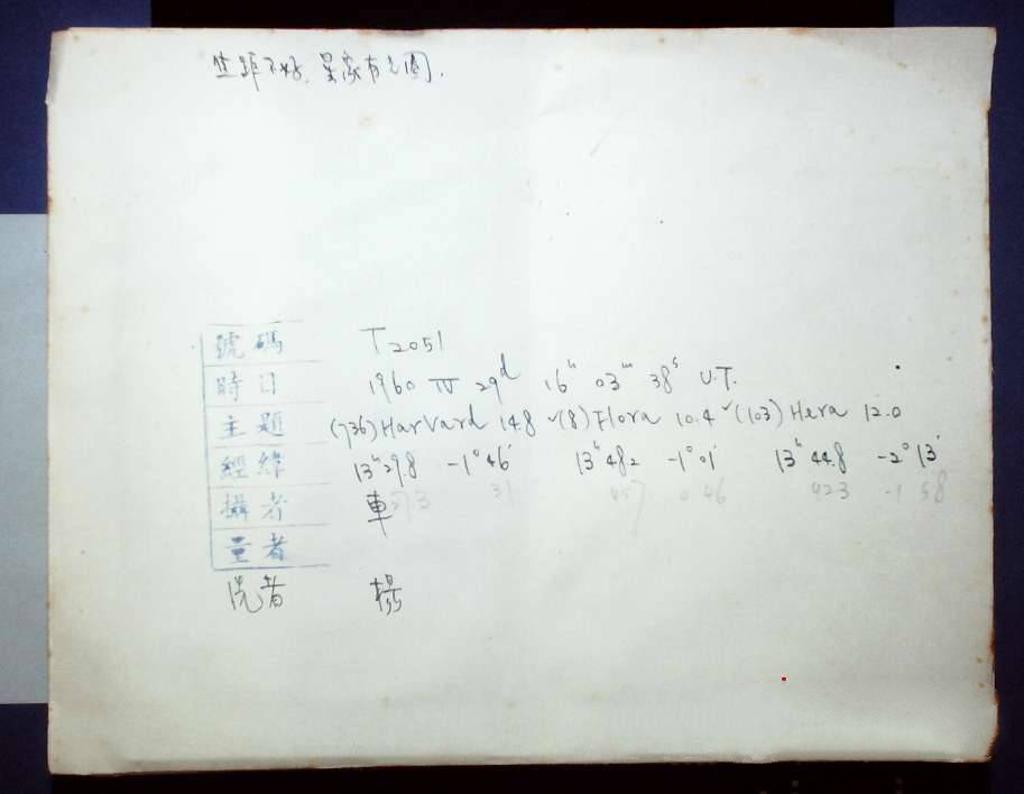 焦距不好，星象有光圈．
號碼 T2051
時日 1960 IV 29d 16h 03m 38s U.T.
主題 (736) Harvard 14.8 ✓(8) Flora 10.4 ✓(103) Hera 12.0
經緯 13h29.8 -1°46' 13h48.2 -1°01' 13h44.8 -2°13'
攝者 車 31 45.7 0 46 42.3 -1 58
量者
洗者 楊